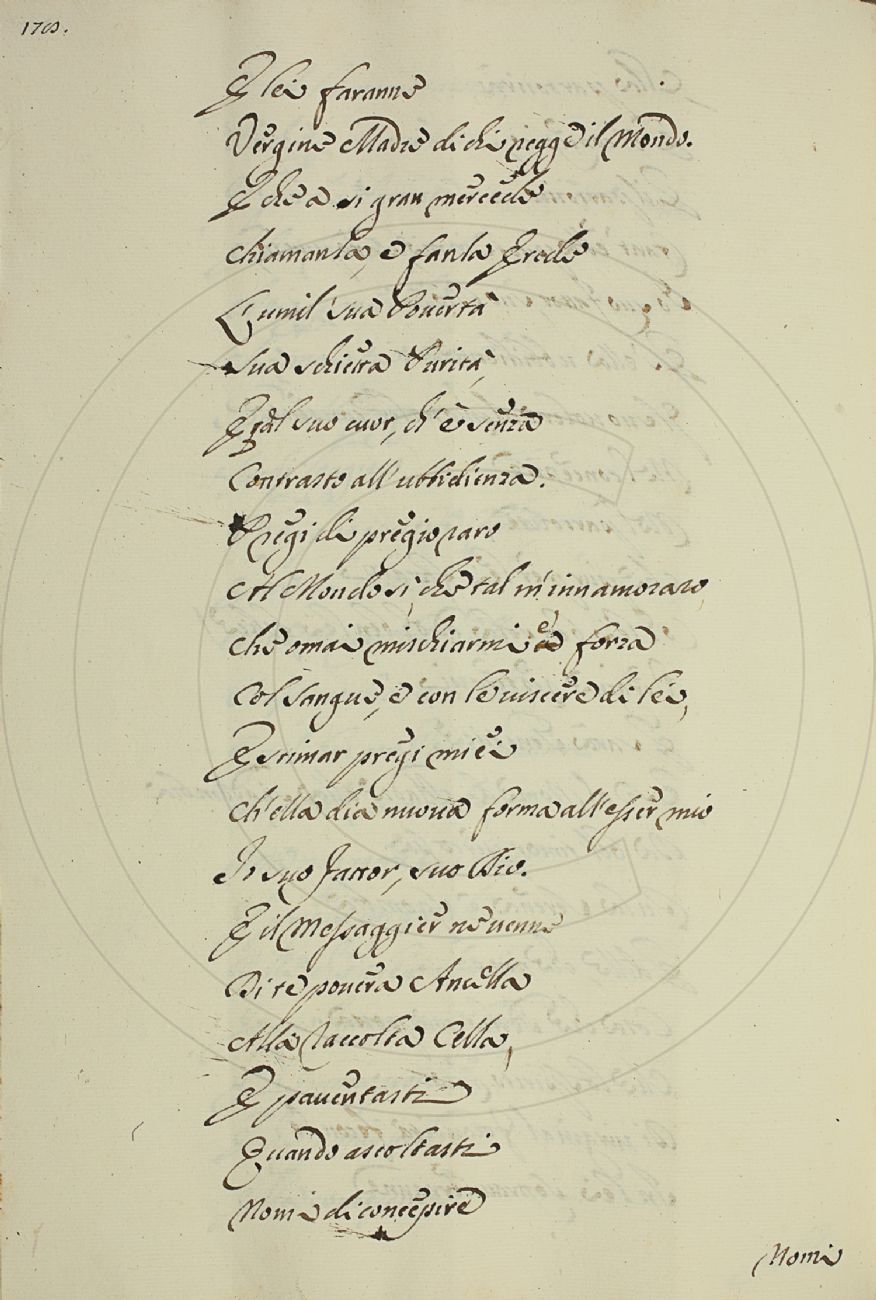 1760.
E lei faranno
Vergine Madre di chi regge il Mondo.
E che a sì gran mercede
Chiamanla, e fanla Erede
L'umil sua Povertà
Sua schietta Purità,
E quel suo cuor, ch'è senza
Contrasto all'ubbidienza.
Pregi di pregio raro
Al Mondo sì, che tal m'innamoraro,
Che omai mischiarmi è forza
Col sangue, e con le viscere di lei,
E stimar pregi miei
Ch'ella dia nuova forma all'esser mio
Io suo Fattor, suo Dio.
E il Messaggier ne venne
Di te povera Ancella
Alla raccolta Cella,
E paventasti
Quando ascoltasti
Nomi di concepire
Nomi